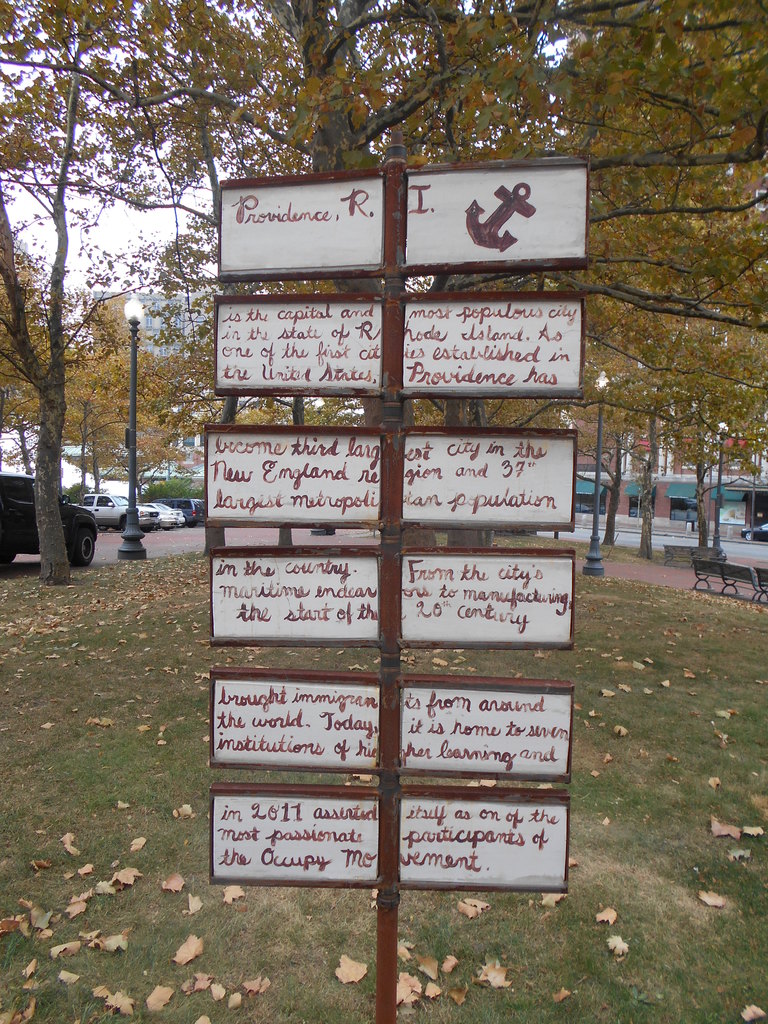 Providence, R. I.
is the capital and most populous city
in the state of Rhode Island. As
one of the first cities established in
the United States, Providence has
become third largest city in the
New England region and 37th
largest metropolitan population
in the country. From the city's
maritime endeavors to manufacturing,
the start of the 20th century
brought immigrants from around
the world. Today, it is home to seven
institutions of higher learning and
in 2011 asserted itself as on of the
most passionate participants of
the Occupy Movement.